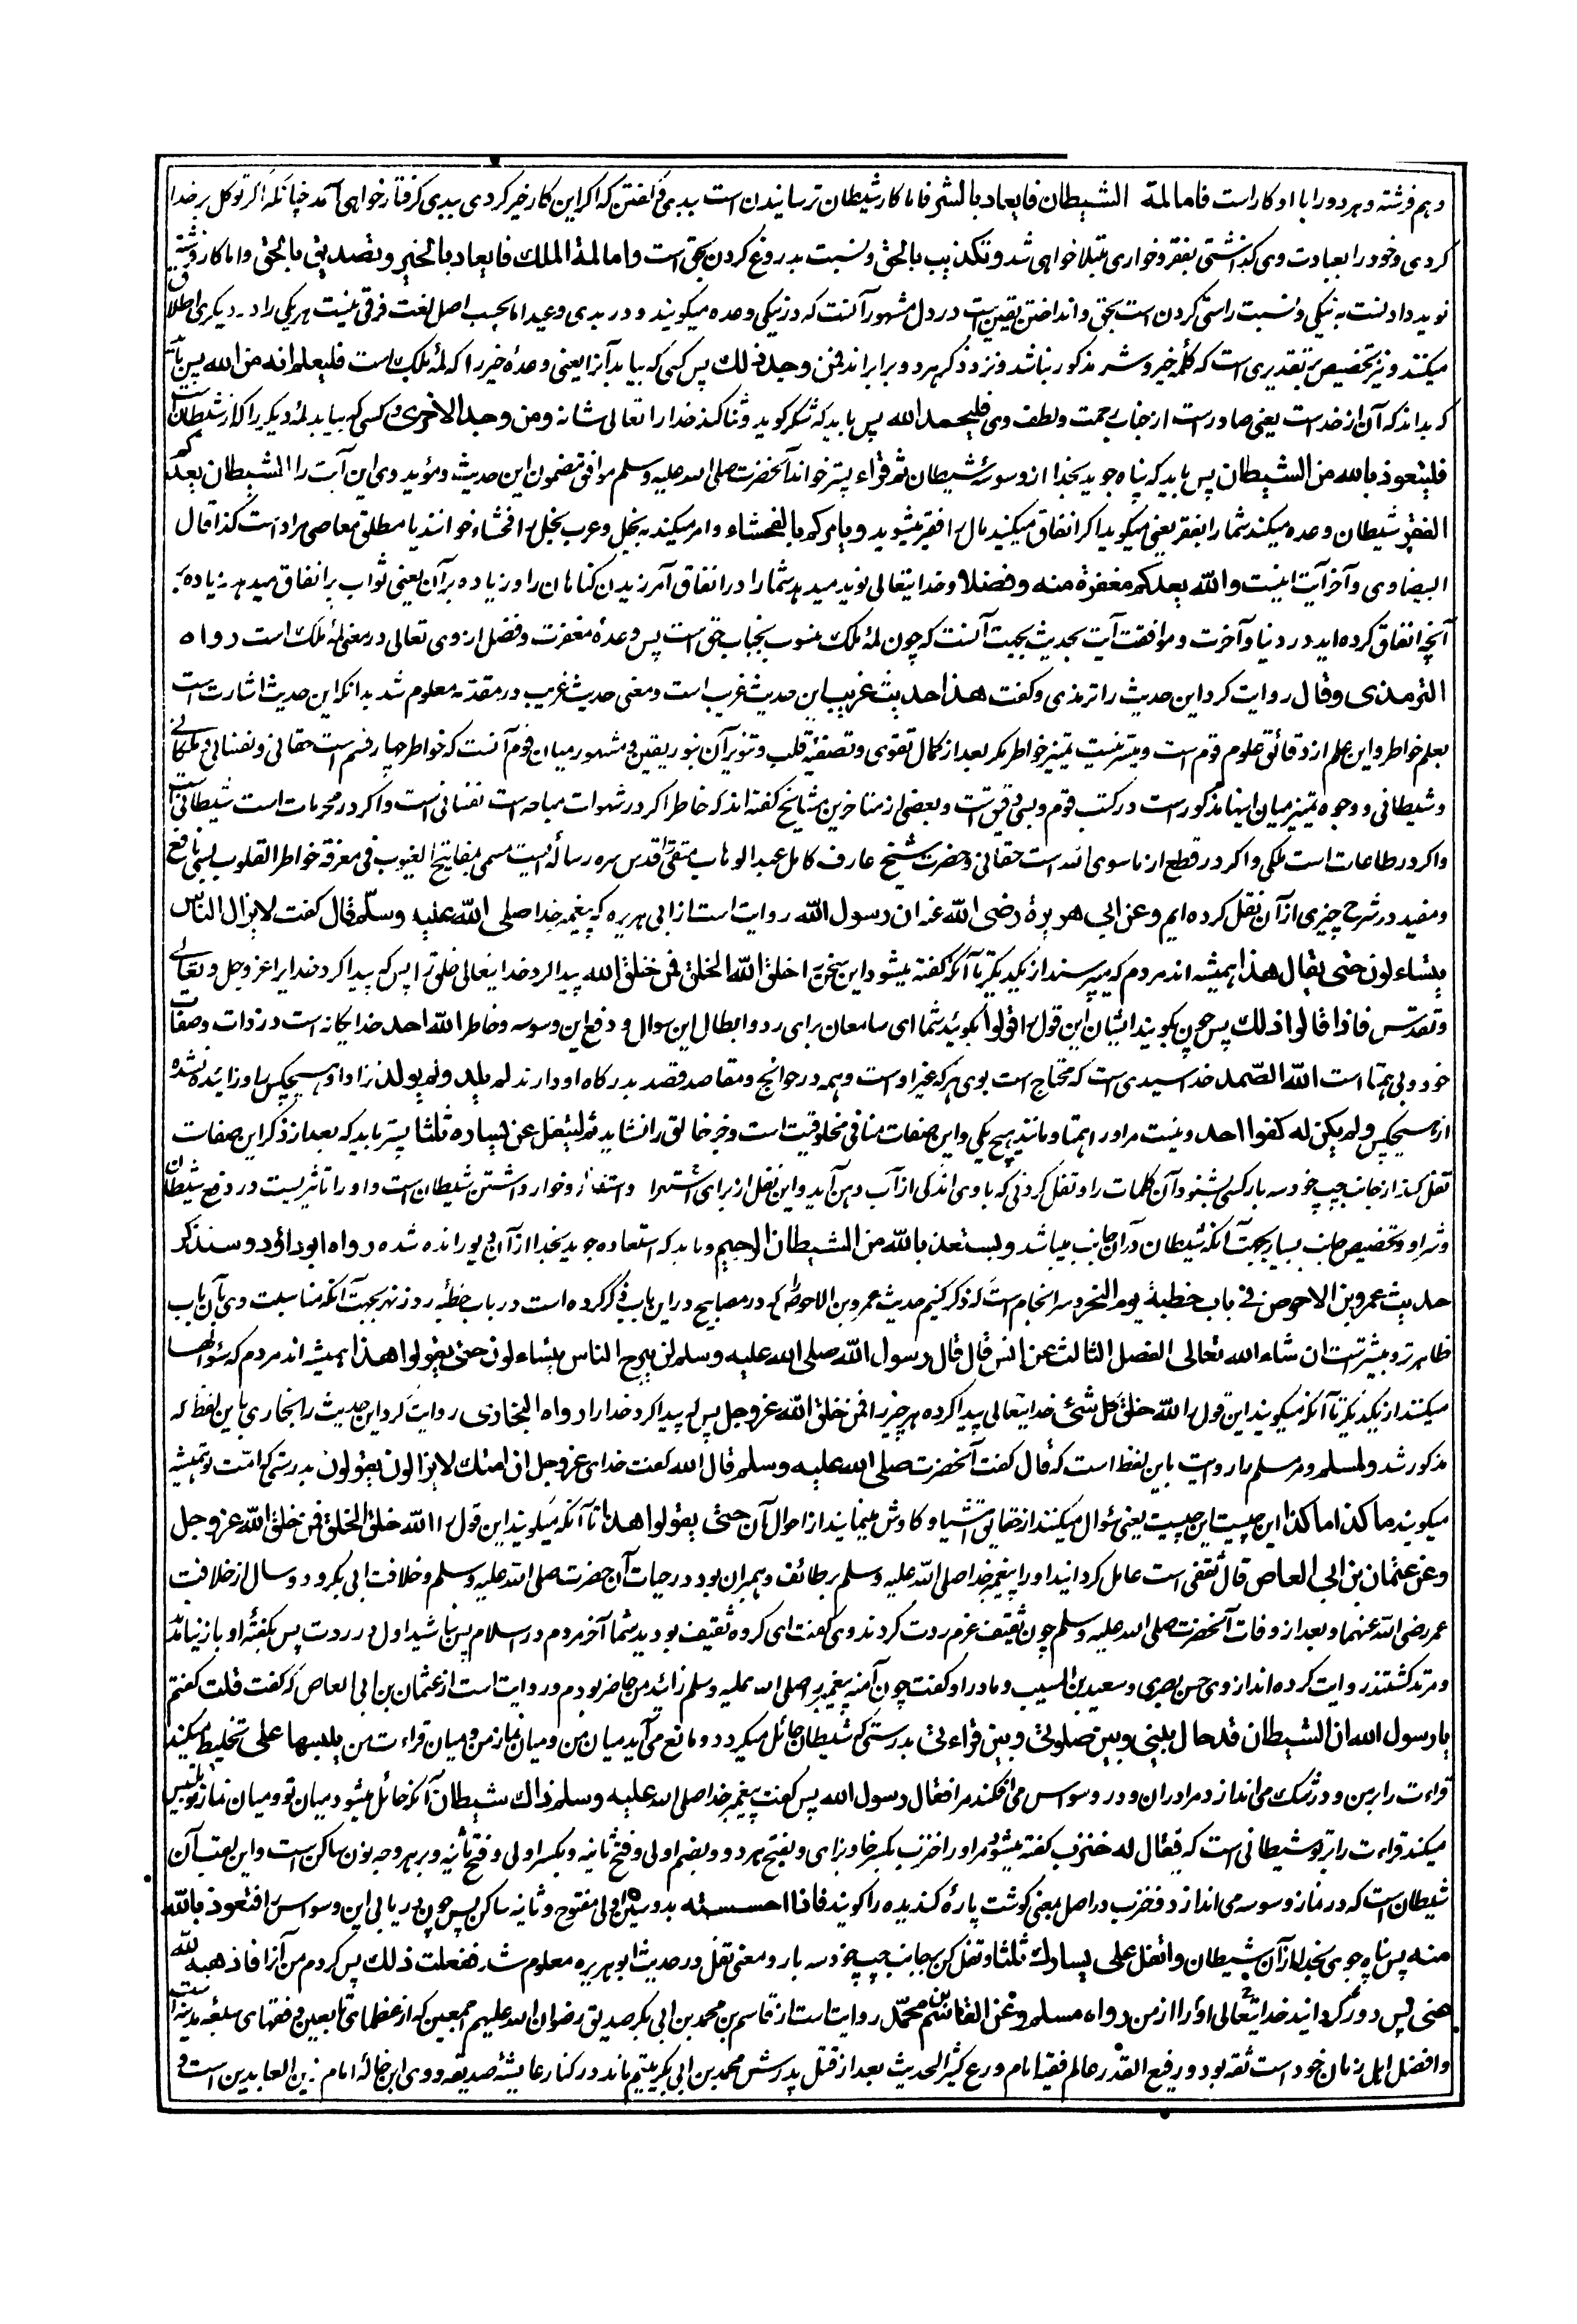 و هم فرشته و هر دو را با او کار است فاما لمة الشیطان فایعاد بالشر فاما کار شیطان ترسانیدن است ببدی گفتن که اگر این کار خیر کردی ببدی گرفتار خواهی آمد چنانکه اگر توکل بر خدا
کردی و خود را بعبادت وی گذاشتی بفقر و خواری مبتلا خواهی شد و تکذیب بالحق و نسبت بدروغ کردن بحق است و اما لمة الملک فایعاد بالخیر و تصدیق بالحق و اما کار فرشته
نوید دادنست به نیکی و نسبت راستی کردن است بحق و انداختن یقین است در دل مشهور آنست که در نیکی وعده میگویند و در بدی وعید اما بحسب اصل لغت فرقی نیست هر یکی را در دیگری اطلاق
میکنند و نیز تخصیص بتقدیری است که کلمه خیر و شر مذکور نباشد و نزد ذکر هر دو برابراند فمن وجد ذلک پس کسی که بیابد آنرا یعنی وعده خیر را که لمهٔ ملک است فلیعلم انه من الله پس باید
که بداند که آن از خداست یعنی صادر است از جناب رحمت و لطف وی فلیحمد الله پس باید که شکر گوید و ثنا کند خدا را تعالی شانه و من وجد الاخری و کسی که بیابد لمهٔ دیگر را که از شیطان است
فلیتعوذ بالله من الشیطان پس باید که پناه جوید بخدا از وسوسهٔ شیطان ثم قراء پستر خواند آنحضرت صلی الله علیه وسلم موافق مضمون این حدیث و مؤید وی این آیت را الشیطان یعدکم
الفقر شیطان وعده میکند شما را بفقر یعنی میگوید اگر انفاق میکنید مال را فقیر میشوید و یامرکم بالفحشاء و امر میکند به بخل و عرب بخل را فحشاء خوانند یا مطلق معاصی مراد است کذا قال
البیضاوی و آخر آیت اینست و الله یعدکم مغفرة منه و فضلا و خدایتعالی نوید میدهد شما را در انفاق آمرزیدن گناهان را و زیاده بر آن یعنی ثواب بر انفاق میدهد زیاده بر
آنچه انفاق کرده اید در دنیا و آخرت و موافقت آیت بحدیث بجهت آنست که چون لمهٔ ملک منسوب بجناب حق است پس وعدهٔ مغفرت و فضل از وی تعالی در معنی لمهٔ ملک است رواه
الترمذی و قال روایت کرد این حدیث را ترمذی و گفت هذا حدیث غریب این حدیث غریب است و معنی حدیث غریب در مقدمه معلوم شد بدانکه این حدیث اشارت است
بعلم خواطر و این علم از دقائق علوم قوم است و میسر نیست تمیز خواطر مگر بعد از کمال تقوی و تصفیهٔ قلب و تنویر آن بنور یقین و مشهور میان قوم آنست که خواطر چهار قسم است حقانی و نفسانی و ملکانی
و شیطانی و وجوه تمیز میان اینها مذکور است در کتب قوم و بسی دقیق است و بعضی از متاخرین مشایخ گفته اند که خاطر اگر در شهوات مباحه است نفسانی است و اگر در محرمات است شیطانی است
و اگر در طاعات است ملکی و اگر در قطع از ماسوی الله است حقانی و حضرت شیخ عارف کامل عبد الوهاب متقی را قدس سره رساله ایست مسمی بمفاتیح الغیوب فی معرفة خواطر القلوب بسی نافع
و مفید در شرح چیزی از آن نقل کرده ایم و عن ابی هریرة رضی الله عنه ان رسول الله روایت است از ابی هریره که پیغمبر خدا صلی الله علیه وسلّم قال گفت لا یزال الناس
یتساءلون حتی یقال هذا همیشه اند مردم که میپرسند از یکدیگر تا آنکه گفته میشود این سخن را خلق الله الخلق فمن خلق الله پیدا کرد خدایتعالی خلق را پس که پیدا کرد خدا را عز و جل و تعالی
و تقدس فاذا قالوا ذلک پس چون بگویند ایشان این قول را قولوا بگوئید شما ای سامعان برای رد و ابطال این سوال و دفع این وسوسه و خاطر الله احد خدا یگانه است در ذات و صفات
خود و بی همتا است الله الصمد خدا سیدی است که محتاج است بوی هر که غیر اوست و همه در حوائج و مقاصد قصد بدرگاه او دارند لم یلد و لم یولد نزاد او هیچکس را و زائیده نشده
از هیچکس و لم یکن له کفوا احد و نیست مر او را همتا و مانند هیچ یکی و این صفات منافی مخلوقیت است و جز خالق را نشاید ثم لیتفل عن یساره ثلثا پستر باید که بعد از ذکر این صفات
تفل کند از جانب چپ خود سه بار کسی بشنود آن کلمات را و تفل کردنی که با وی اندکی از آب دهن آید و این تفل از برای اشمزاء و استقذار و خوار داشتن شیطان است و او را تاثیریست در دفع شیطان
و شر او و تخصیص جانب یسار بجهت آنکه شیطان در آن جانب میباشد و لیستعذ بالله من الشیطان الرجیم و باید که استعاذه جوید بخدا از آن دیو رانده شده رواه ابو داؤد و سنذکر
حدیث عمرو بن الاحوص فی باب خطبة یوم النحر و سرانجام است که ذکر کنیم حدیث عمرو بن الاحوص را که در مصابیح در این باب ذکر کرده است در باب خطبه روز نحر بجهت آنکه مناسبت وی بآن باب
ظاهر تر و بیشتر است ان شاء الله تعالی الفصل الثالث عن انس قال قال رسول الله صلی الله علیه وسلم لن یبرح الناس یتساءلون حتی یقولوا هذا همیشه اند مردم که سؤالها
میکنند از یکدیگر تا آنکه میگویند این قول را الله خلق کل شئ خدایتعالی پیدا کرده هر چیز را فمن خلق الله عز و جل پس که پیدا کرد خدا را رواه البخاری روایت کرد این حدیث را بخاری باین لفظ که
مذکور شد و لمسلم و مر مسلم را روایت باین لفظ است که قال گفت آنحضرت صلی الله علیه وسلم قال الله گفت خدای عز و جل ان امتک لا یزالون یقولون بدرستی که امت تو همیشه
میگویند ما کذا ما کذا این چیست این چیست یعنی سؤال میکنند از حقایق اشیا و کاوش مینمایند از احوال آن حتی یقولوا هذا تا آنکه میگویند این قول را الله خلق الخلق فمن خلق الله عز و جل
و عن عثمان بن ابی العاص قال ثقفی است عامل گردانید او را پیغمبر خدا صلی الله علیه وسلم بر طائف و هم بر آن بود در حیات آنحضرت صلی الله علیه وسلم و خلافت ابی بکر و دو سال از خلافت
عمر رضی الله عنهما و بعد از وفات آنحضرت صلی الله علیه وسلم چون ثقیف عزم ردت کردند وی گفت ای گروه ثقیف بودید شما آخر مردم در اسلام پس نباشید اول در ردت پس بگفته او باز نیامدند
و مرتد گشتند روایت کرده اند از وی حسن بصری و سعید بن المسیب و مادر او گفت چون آمنه پیغمبر را صلی الله علیه وسلم زائید من حاضر بودم و روایت است از عثمان بن ابی العاص که گفت قلت گفتم
یا رسول الله ان الشیطان قد حال بینی و بین صلوتی و بین قراءتی بدرستی که شیطان حائل میگردد و مانع می آید میان من و میان نماز من و میان قراءت من یلبسها علی تخلیط میکند
قراءت را بر من و در شک می اندازد مرا در آن و در وسواس می افکند مرا فقال رسول الله پس گفت پیغمبر خدا صلی الله علیه وسلم ذاک شیطان آنکه حائل میشود میان تو و میان نماز تو تلبیس
میکند قراءت را بر تو شیطانی است که یقال له خنزب گفته میشود مر او را خنزب بکسر خا و زای و بفتح هر دو و بضم اولی و فتح ثانیه و بکسر اولی و فتح ثانیه و بر هر وجه نون ساکن است و این لقب آن
شیطان است که در نماز وسوسه می اندازد و خنزب در اصل بمعنی گوشت پارهٔ گندیده را گویند فاذا احسسته بدو سین اولی مفتوح و ثانیه ساکن پس چون دریابی این وسواس را فتعوذ بالله
منه پس پناه جوی بخدا از آن شیطان و اتفل علی یسارک ثلثا و تفل کن جانب چپ خود سه بار و معنی تفل در حدیث ابو هریره معلوم شد ففعلت ذلک پس کردم من آنرا فاذهبه الله
عنی پس دور گردانید خدایتعالی او را از من رواه مسلم و عن القاسم بن محمد روایت است از قاسم بن محمد بن ابی بکر صدیق رضوان الله علیهم اجمعین که از عظمای تابعین و فقهای سبعه مدینه است
و افضل اهل زمان خود است ثقه بود و رفیع القدر عالم فقیه امام ورع کثیر الحدیث بعد از قتل پدرش محمد بن ابی بکر یتیم ماند در کنار عایشهٔ صدیقه و وی ابن خالهٔ امام زین العابدین است و